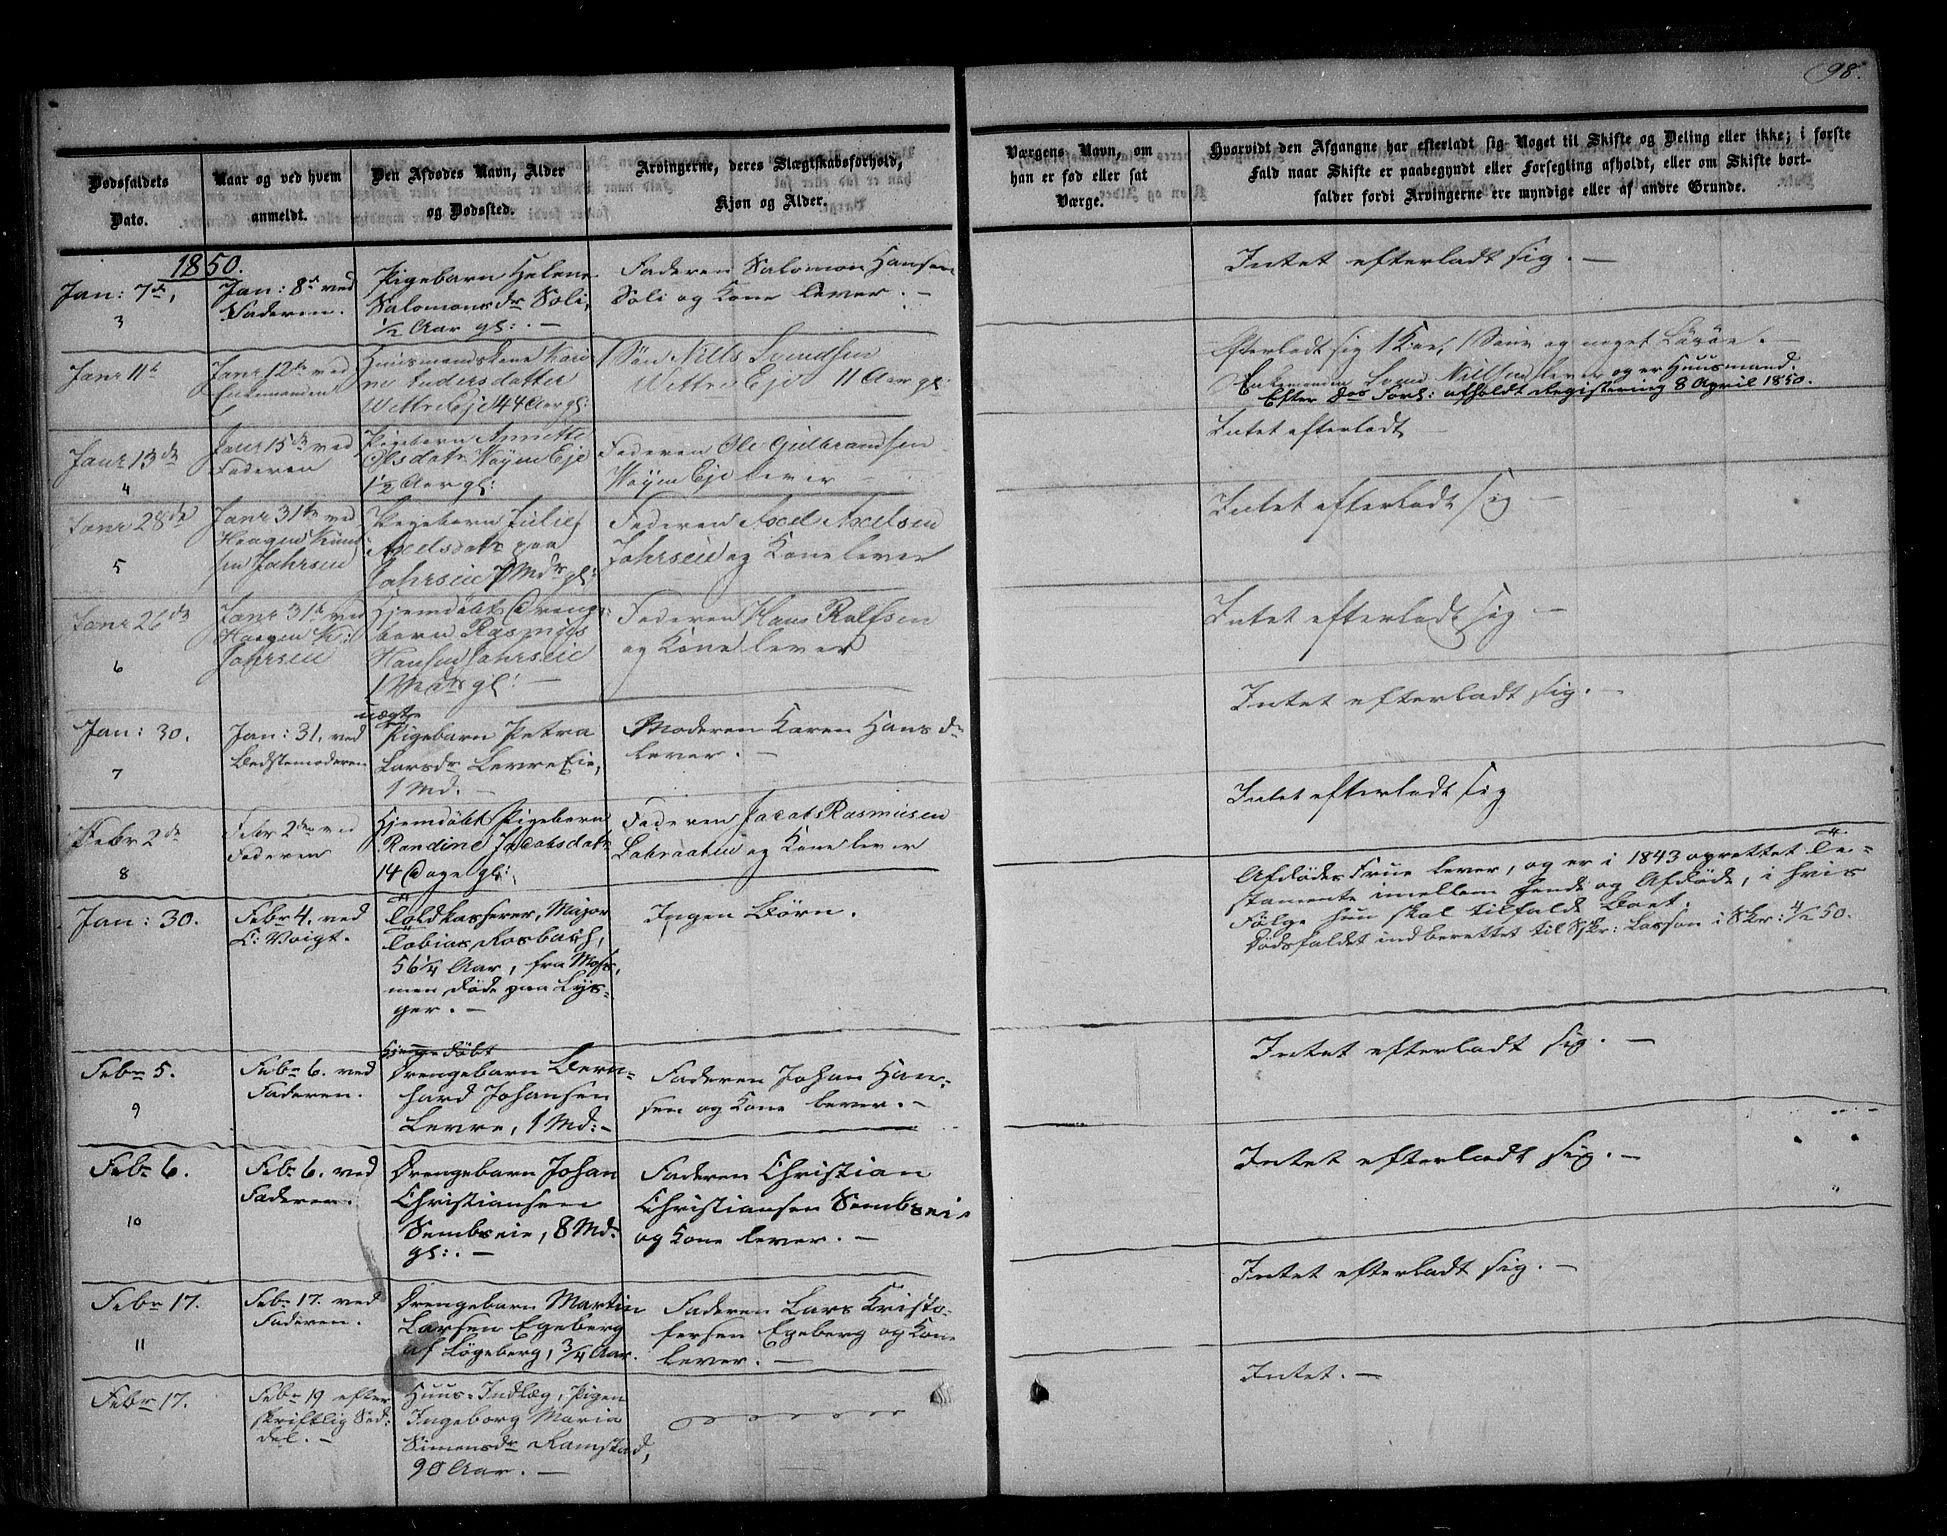 98.
Dødsfaldets
Dato.
Naar og ved hvem
anmeldt.
Den Afdødes Navn, Alder
og Dødssted.
Arvingerne, deres Slægtskabsforhold,
Kjøn og Alder.
Værgens Navn, om
han er fød eller sat
Værge.
Hvorvidt den Afgangne har efterladt sig Noget til Skifte og Deling eller ikke; i første
Fald naar Skifte er paabegyndt eller Forsegling afholdt, eller om Skifte bort-
falder fordi Arvingerne ere myndige eller af andre Grunde.
1850.
Jan: 7de,
3
Jan: 8de ved
Faderen.
Pigebarn Helene
Salomonsdr Soli,
1/2 Aar gl: . —
Faderen Salomon Hansen
Soli og Kone lever. —
Intet efterladt sig. —
Janr 11te
Janr 12te ved
Enkemanden
Huusmandskone Kari
ne Andersdatter
Wettre Eje 44 Aar gl:
1 Søn Nills Svendsen
Wettre Eje 11 Aar gl:
Efterladt sig 1 Koe, og noget Løsøe. —
Enkemanden Svend Nillsen lever og er Huusmand.
Efter Dos Forl: afholdt Registering 8 April 1850.
Janr 13de
4
Janr 15de ved
Faderen
Pigebarn Annette
Olsdatr Wøyen Eje
1 1/2 Aar gl:
Faderen Ole Gulbrandsen
Wøyen Eje lever —
Intet efterladt —
Janr 28de
5
Janr 31te ved
Haagen Knud
sen Jahrseie
Pigebarn Julie
Axelsdatr paa
Jahrseie 7 Mdr gl:
Faderen Axel Axelsen
Jahrseie og Kone lever
Intet efterladt sig —
Janr 26de
6
Janr 31te ved
Haagen K:
Jahrseie
Hjemdøbt Dreng
barn Rasmus
Hansen Jahrseie
1 Mdr gl: —
Faderen Hans Rolfsen
og Kone lever
Intet efterladt sig —
Jan: 30.
7
Jan: 31. ved
Bedstemoderen
uægte
Pigebarn Petra
Larsdr Levre Eie,
1 Md. —
Moderen Karen Hansdr
lever. —
Intet efterladt sig. —
Febr 2de
8
Febr 2den ved
Faderen
Hjemdøbt Pigebarn
Randine Jacobsdatr
14 Dage gl:
Faderen Jacob Rasmusen
og Kone lever
Intet efterladt sig
Jan: 30.
Febr 4. ved
C: Voigt.
Toldkasserer, Major
Tobias Rosbach,
56 1/4 Aar, fra Moss,
men døde paa Lys-
ger. —
Ingen Børn.
Afdødes Frue lever, og er i 1843 oprettet Te-
stamente imellem hende og Afdøde, i hvis
Følge hun skal tilfalde Boet.
Dødsfaldet indberettet til Skr: Lasson i Skr: 4/2 50.
Febr 5.
9
Febr 6. ved
Faderen.
Hjemmedøbt
Drengebarn Bern-
hard Johansen
Levre, 1 Md: —
Faderen Johan Han-
sen og Kone lever. —
Intet efterladt sig. —
Febr 6.
10
Febr 6. ved
Faderen.
Drengebarn Johan
Christiansen
Sembseie, 8 Md.
gl: . —
Faderen Christian
Christiansen Sembseie
og Kone lever. —
Intet efterladt sig. —
Febr 17.
11
Febr 17. ved
Faderen.
Drengebarn Martin
Larsen Egeberg
af Løgeberg, 3/4 Aar.
Faderen Lars Kristo-
fersen Egeberg og Kone
lever. —
Intet efterladt sig. —
Febr 17.
Febr 19 efter
skriftlig Sed-
del. —
Huus-Indlæg, Pigen
Ingeborg Maria
Simensdr Ramstad,
90 Aar. —
Intet. —